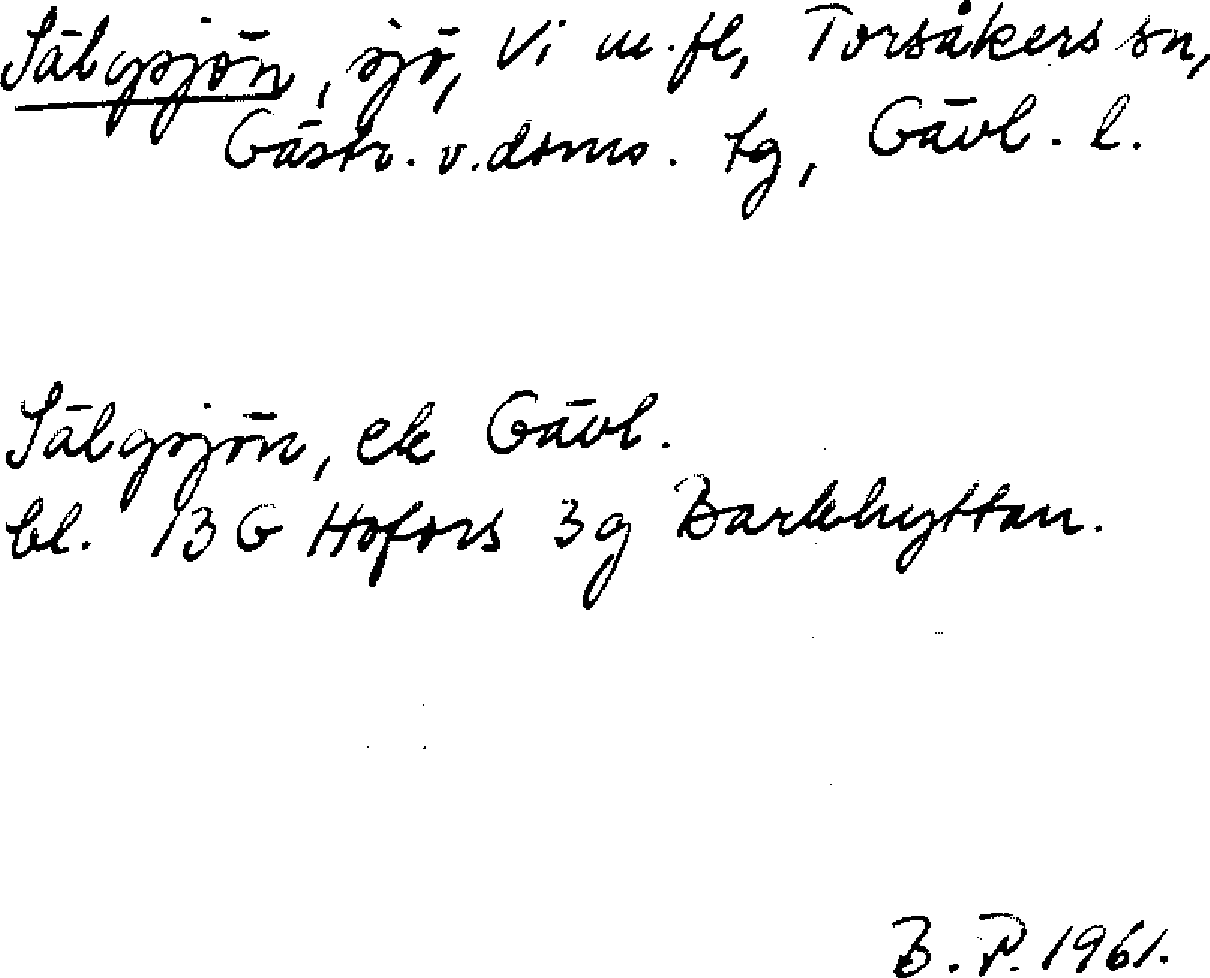 Sälgsjön, sjö, Vi m.fl, Torsåkers sn,
Gästr. v. doms. tg, Gävl. l.
Sälgsjön, ek Gävl.
bl. 13G Hofors 3g Barkhyttan.
B.P. 1961.